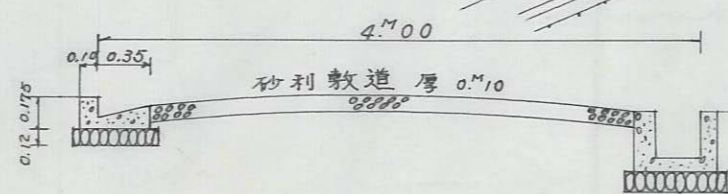 4.M00
0.10 0.35
砂利敷道 厚 0.M10
0.175
0.12